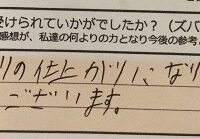 受けられていかがでしたか？（ズバ
感想が、私達の何よりの力となり今後の参考
りの仕上がりになり
ございます。